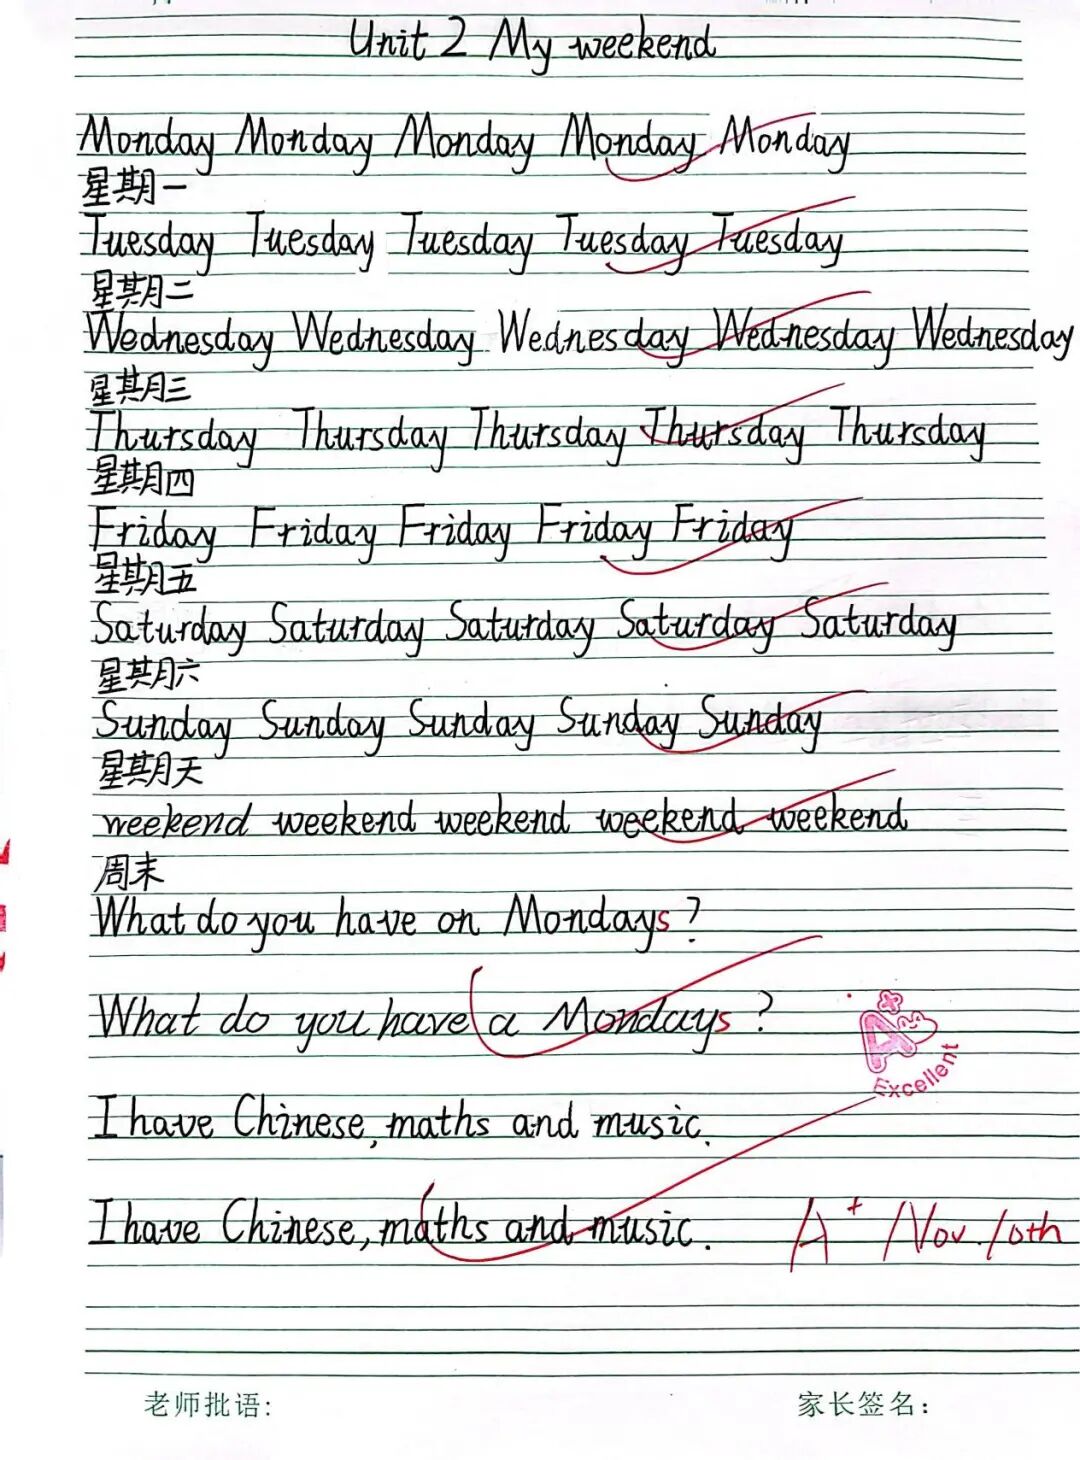 Unit 2 My weekend
Monday Monday Monday Monday Monday
星期一
Tuesday Tuesday Tuesday Tuesday Tuesday
星期二
Wednesday Wednesday Wednesday Wednesday Wednesday
星期三
Thursday Thursday Thursday Thursday Thursday
星期四
Friday Friday Friday Friday Friday
星期五
Saturday Saturday Saturday Saturday Saturday
星期六
Sunday Sunday Sunday Sunday Sunday
星期天
weekend weekend weekend weekend weekend
周末
What do you have on Mondays?
What do you have a Mondays?
A+
Excellent
I have Chinese, maths and music.
I have Chinese, maths and music.
A+ Nov. 10th
老师批语: 家长签名: